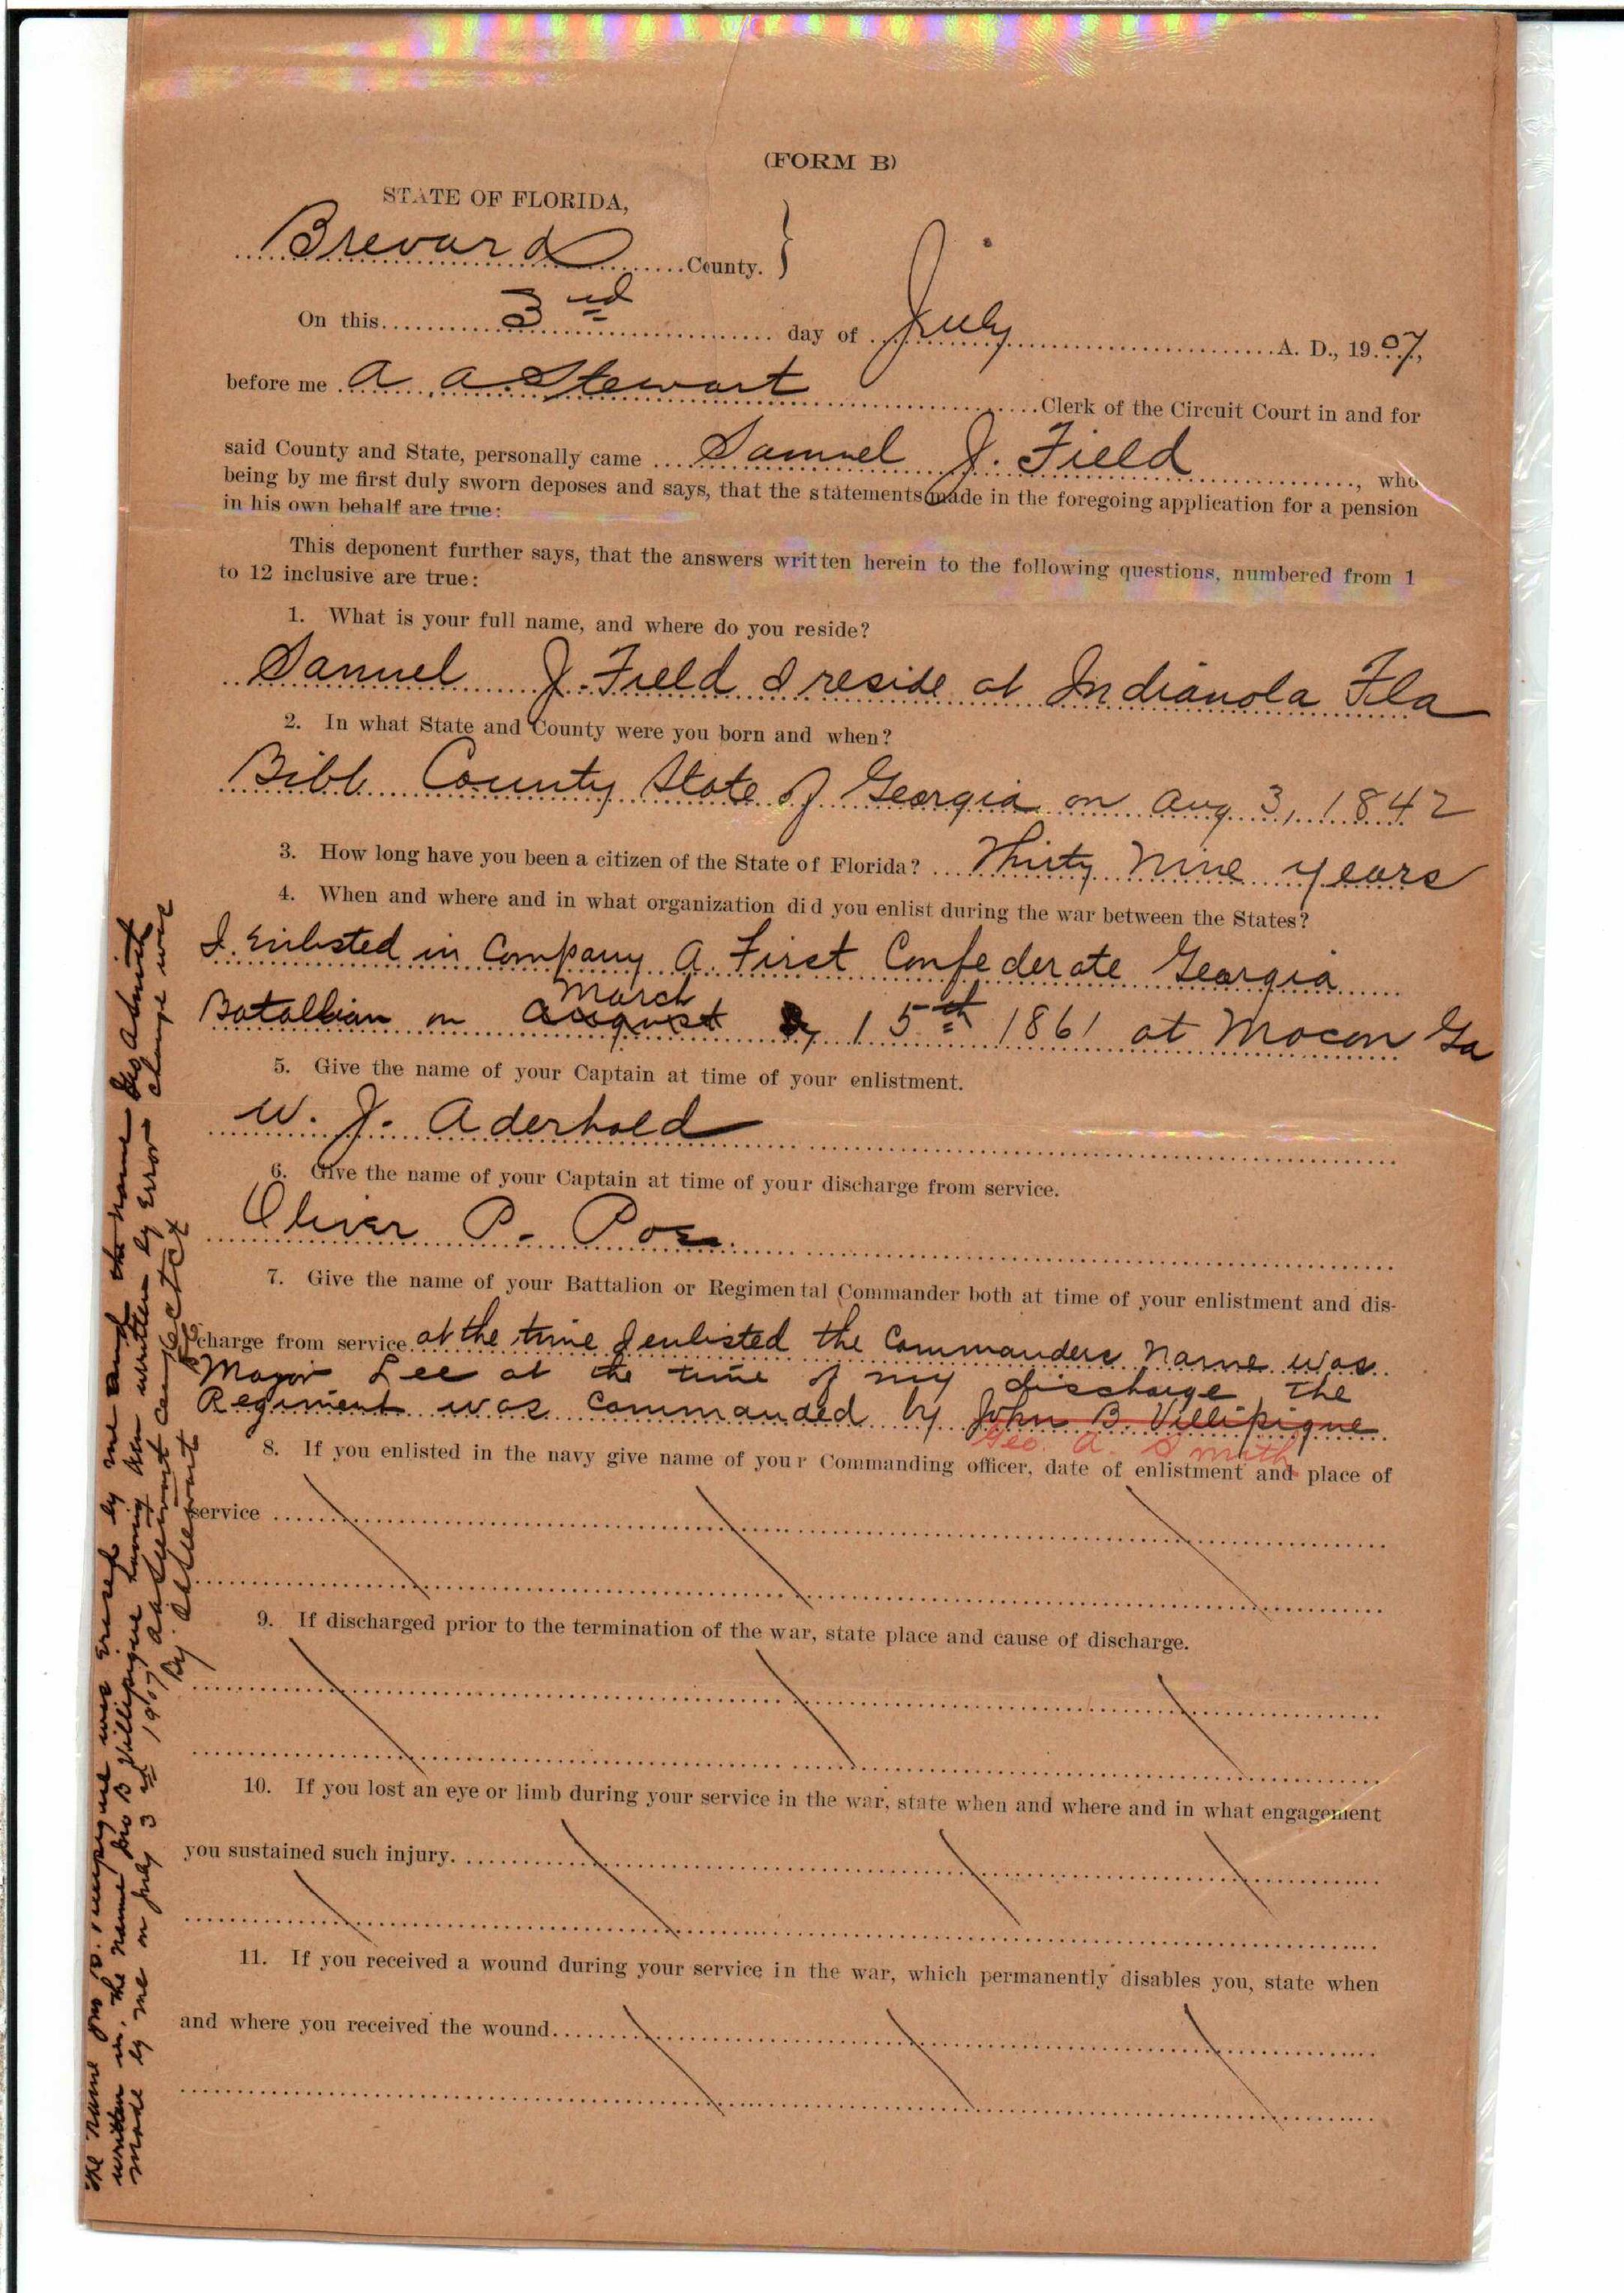 (FORM B)
STATE OF FLORIDA,
Brevard County. }
On this 3rd day of July A. D., 1907,
before me A. A. Stewart Clerk of the Circuit Court in and for
said County and State, personally came Samuel J. Field, who
being by me first duly sworn deposes and says, that the statements made in the foregoing application for a pension
in his own behalf are true:
This deponent further says, that the answers written herein to the following questions, numbered from 1
to 12 inclusive are true:
1. What is your full name, and where do you reside?
Samuel J. Field I reside at Indianola Fla
2. In what State and County were you born and when?
Bibb County State of Georgia on Aug 3, 1842
3. How long have you been a citizen of the State of Florida? Thirty Nine years
4. When and where and in what organization did you enlist during the war between the States?
I Enlisted in Company A. First Confederate Georgia
March
Batallian on August 15th 1861 at Macon Ga
5. Give the name of your Captain at time of your enlistment.
W. J. Aderhold
6. Give the name of your Captain at time of your discharge from service.
Oliver P. Poe
7. Give the name of your Battalion or Regimental Commander both at time of your enlistment and dis-
charge from service at the time I enlisted the Commanders Name was
Major Lee at the time of my discharge the
Regiment was Commanded by John B. Villipigue
Geo. A. Smith
8. If you enlisted in the navy give name of your Commanding officer, date of enlistment and place of
service
9. If discharged prior to the termination of the war, state place and cause of discharge.
10. If you lost an eye or limb during your service in the war, state when and where and in what engagement
you sustained such injury.
11. If you received a wound during your service in the war, which permanently disables you, state when
and where you received the wound.
The name Jno B. Villipigue was Erased by me and the name Geo A Smith
written in, the name Jno B Villipigue having been written by Error change was
made by me on July 3rd 1907